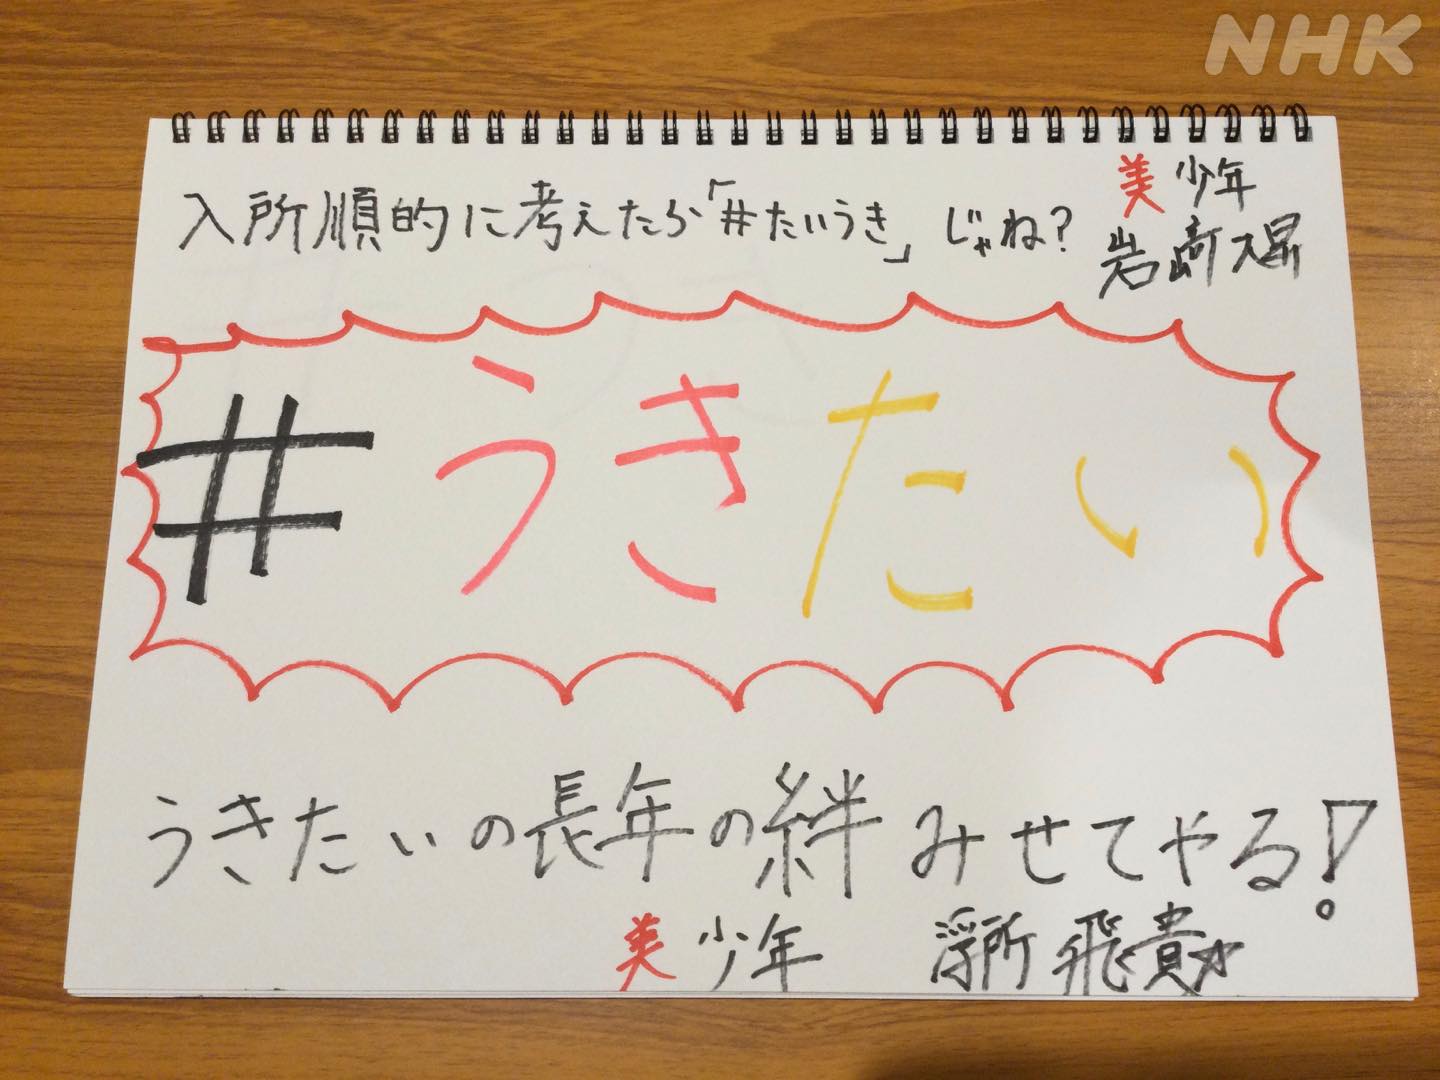 NHK
入所順的に考えたら「#たいうき」じゃね?
美 少年
岩﨑大昇
#うきたい
うきたいの長年の絆みせてやる!
美 少年 浮所飛貴☆